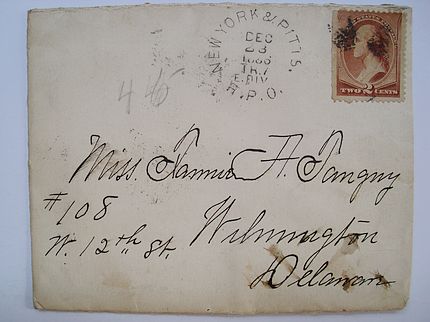 NEW YORK & PITTS.
DEC
23
TR.7
E.DIV
R.P.O.
TWO 2 CENTS
46
Miss. Fannie A.
# 108
W. 12th St.
Wilmington
Delaware